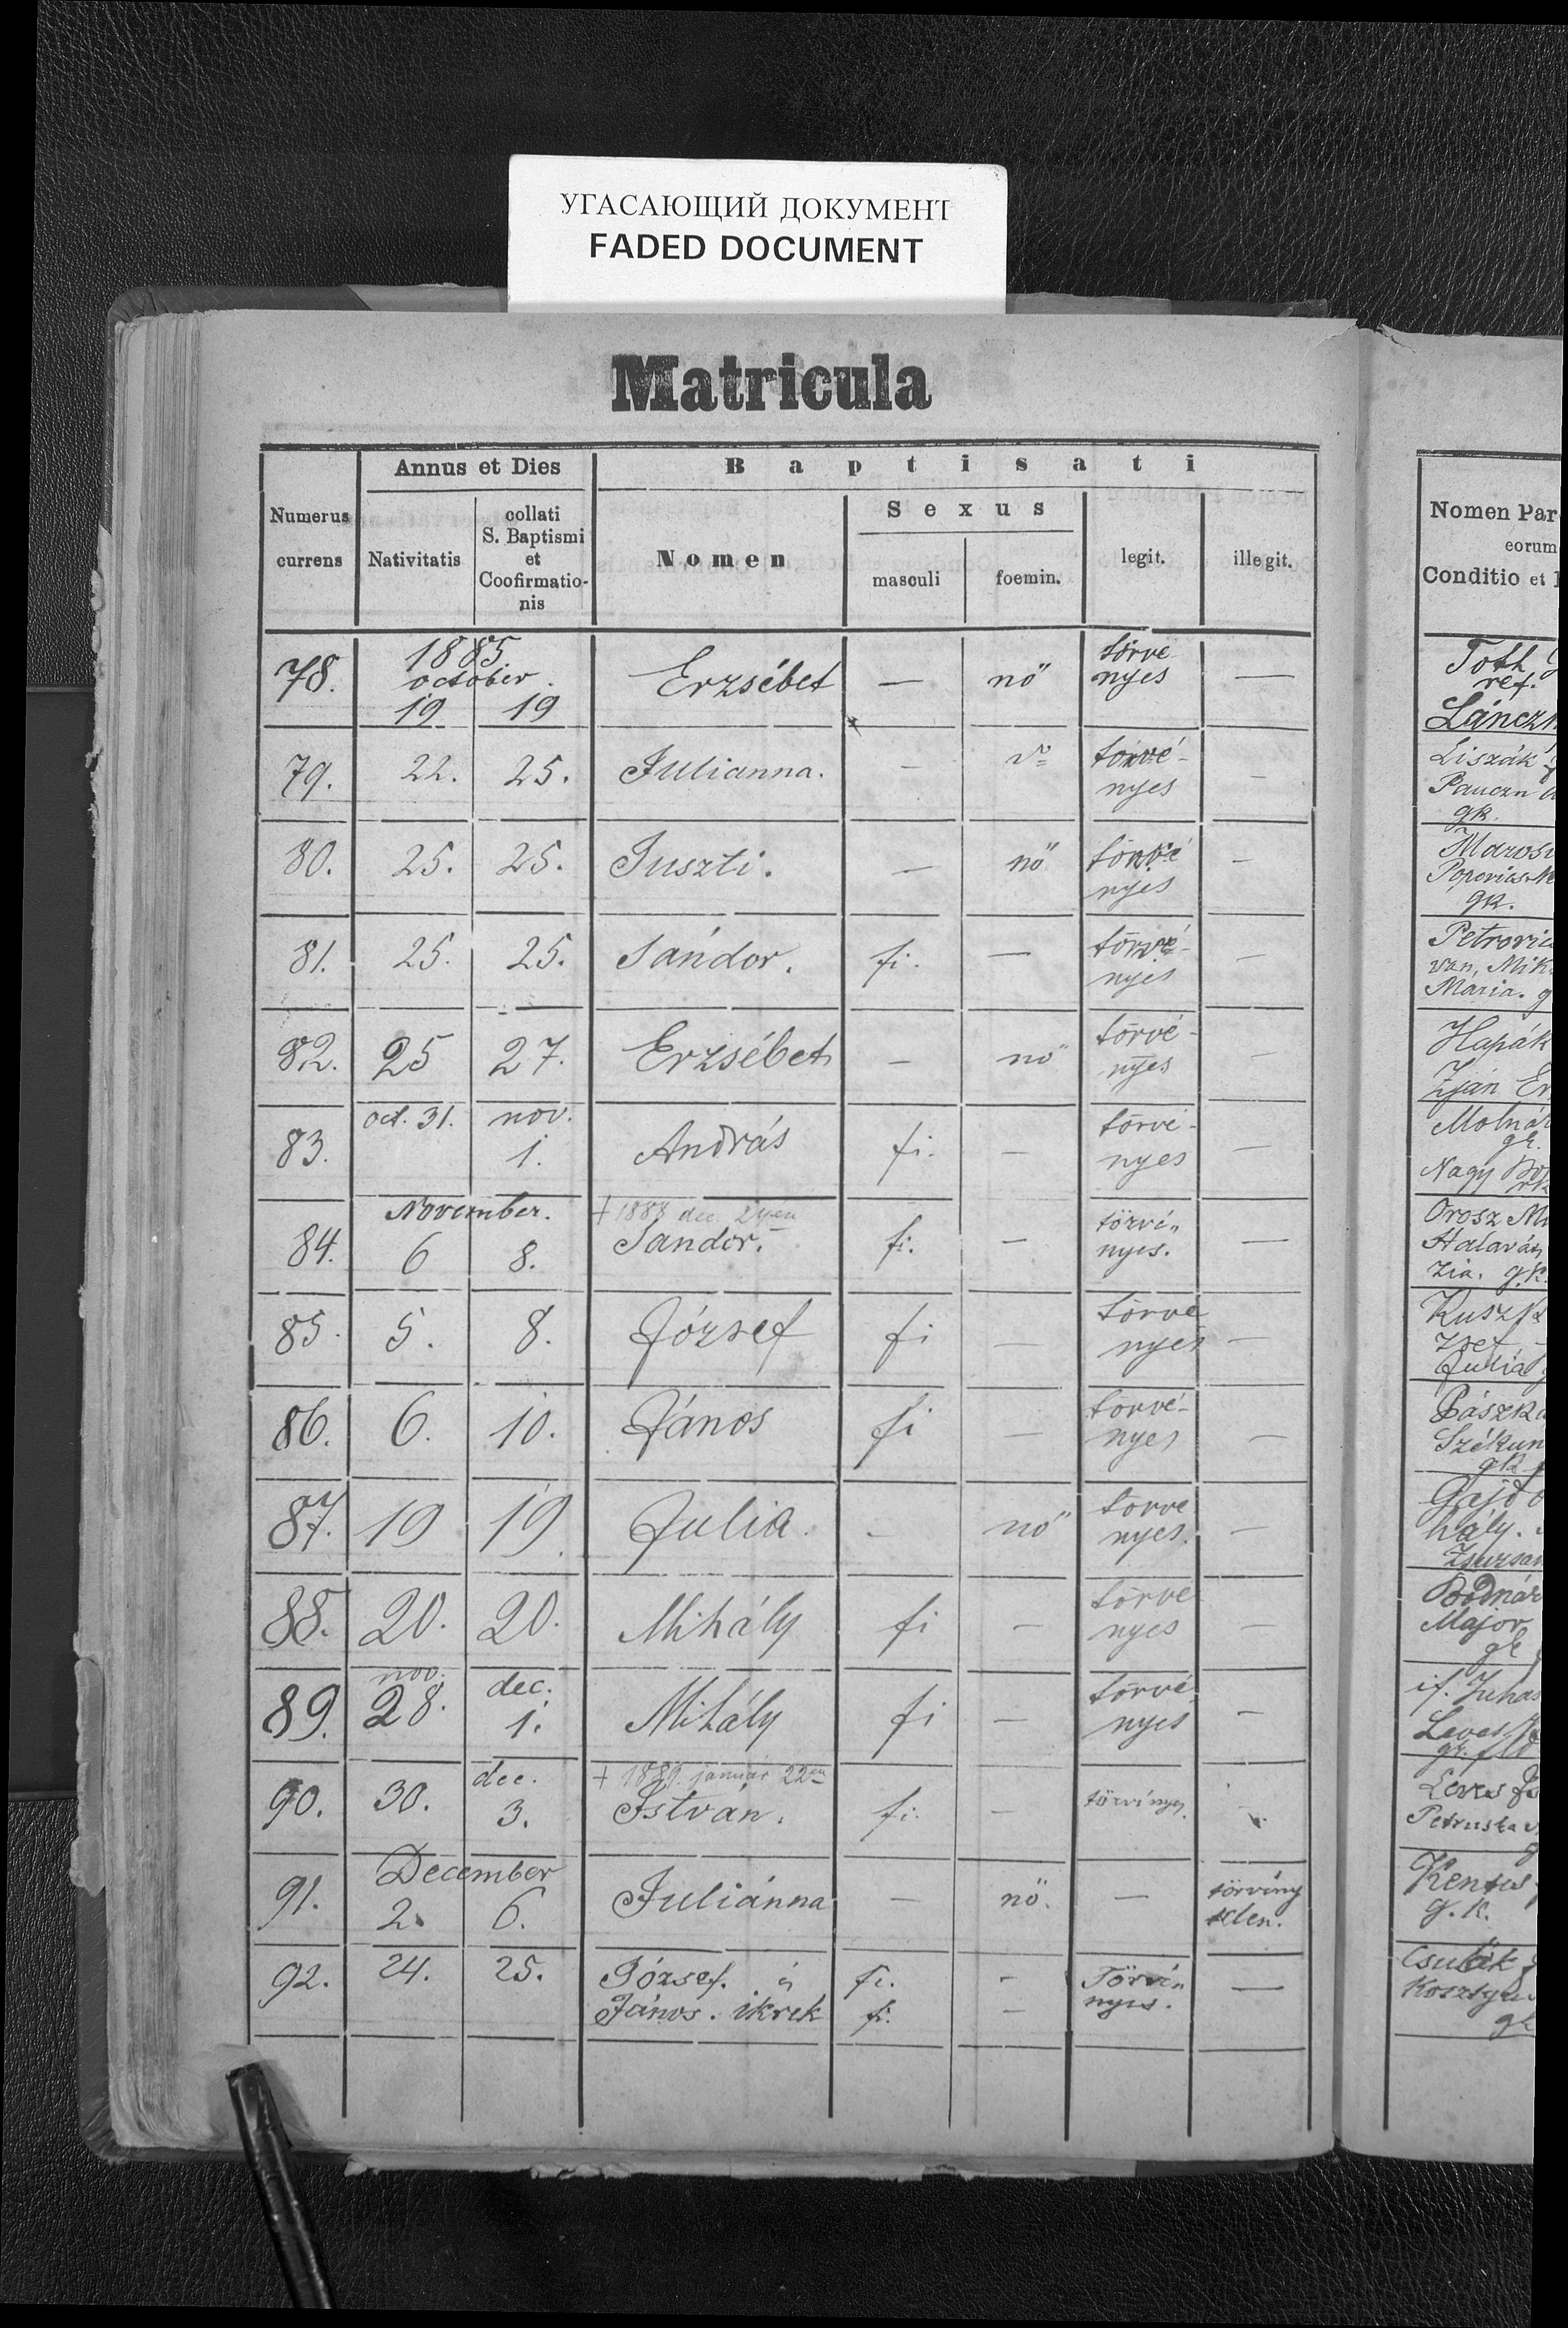 УГАСАЮЩИЙ ДОКУМЕНТ
FADED DOCUMENT
Matricula
Numerus currens
Annus et Dies
Nativitatis
collati S. Baptismi et Coofirmatio-nis
Baptisati
Nomen
Sexus
masculi
foemin.
legit.
illegit.
78. 1885 october 19 19 Erzsébet — nő törve nyes —
79. 22. 25. Julianna. — törvé- nyes —
80. 25. 25. Juszti. — nő törvé nyes —
81. 25. 25. Sándor. fi. — törvé- nyes —
82. 25 27. Erzsébet — nő törvé- nyes —
83. oct. 31. nov. 1. András fi. — törvé- nyes —
84. November. 6 8. † 1888 dec. Sandor. fi. — törvé„ nyes. —
85. 5. 8. József fi — törve nyes —
86. 6. 10. János fi — törvé- nyes —
87. 19 19. Julia. - nő törve nyes. —
88. 20. 20. Mihály fi — törve nyes —
89. nov. 28. dec. 1. Mihály fi — törvé nyes —
90. 30. dec. 3. † január 22en István. fi. — törvényes.
91. December 2. 6. Juliánna — nő. — törvény telen.
92. 24. 25. József. és fi. - Törvé„ nyes. —
János. ikrek fi. —
Nomen Par
eorum
Conditio et
Toth
ref.
Láncz
Liszák
Pauczn
gk.
Maros
Popovics
gk.
Petrovic
van, Mik
Mária. g
Hapák
Zján Er
Molnár
gk.
Nagy
Orosz Mi
Halavá
zia. g.k.
Kusz
zsef
Julia
Pászk
Székun
gk
Gajdo
hály.
Zsuzsan
Bodnár
Major
gk
if. Juhas
Leves
gk.
Leves
Petruska
Kentus
g. k.
Csulák
Kosztyu
gk